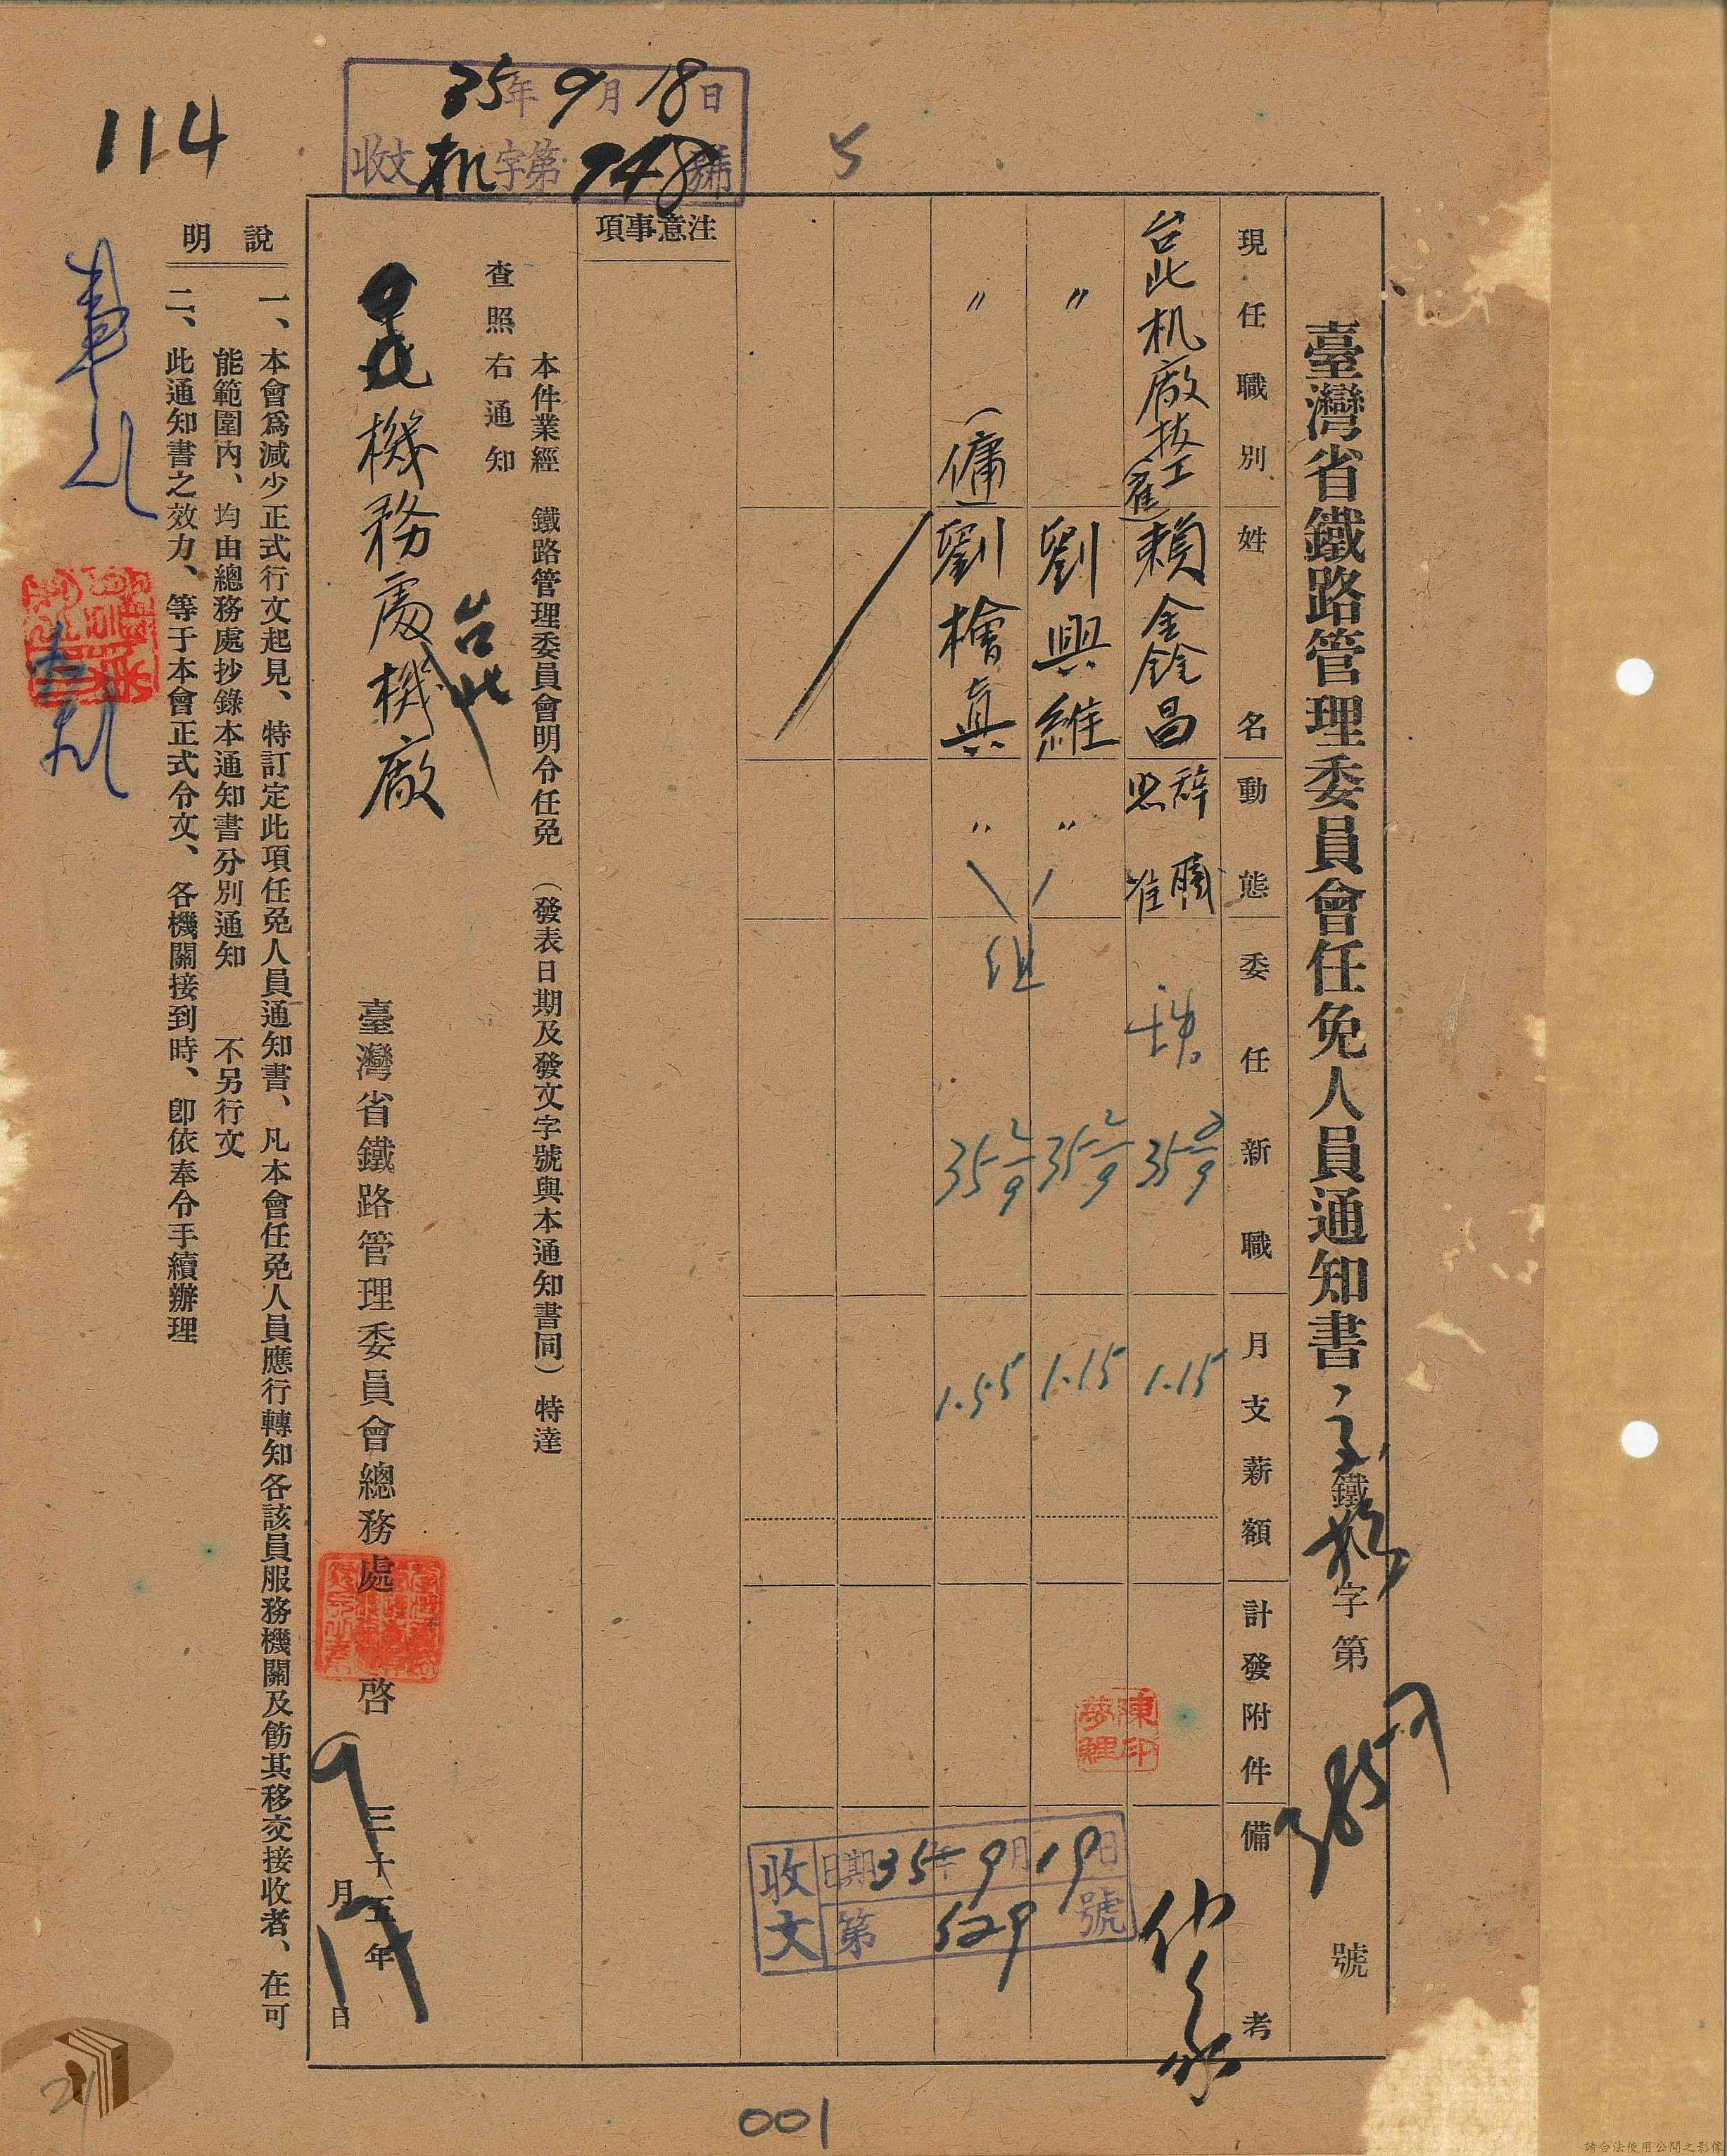 臺灣省鐵路管理委員會任免人員通知書
鐵 字第 3857 號
現任職別
姓名
動態
委任新職
月支薪額
計發附件
備考
台北机廠技工(雇) 賴金銓昌 辭職照准 35 9 1.15
〃 劉興維 〃 35 2/9 1.15
〃(傭) 劉檜真 〃 35 2/9 1.55
陳夢鯉印
注意事項
本件業經 鐵路管理委員會明令任免 (發表日期及發文字號與本通知書同) 特達
查照右通知
機務處台北機廠
臺灣省鐵路管理委員會總務處 啓
三十五年9月17日
說明
一、本會爲減少正式行文起見、特訂定此項任免人員通知書、凡本會任免人員應行轉知各該員服務機關及飭其移交接收者、在可
能範圍内、均由總務處抄錄本通知書分別通知 不另行文
二、此通知書之效力、等于本會正式令文、各機關接到時、卽依奉令手續辦理
35年9月18日
收文机字第948號
收文
日期35年9月19日
第529號
114
5
001
21
請合法使用公開之影像